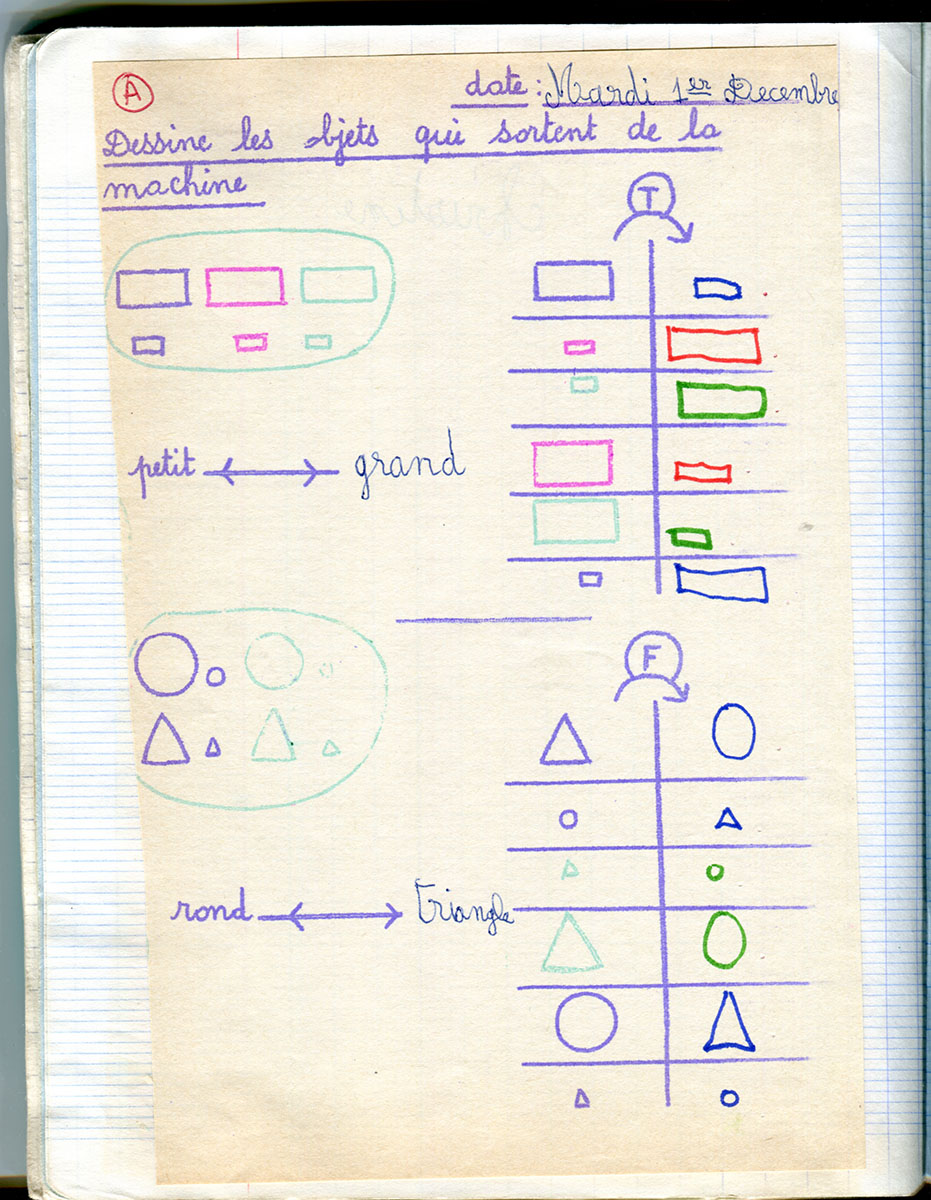 A
date : Mardi 1er Decembre
Dessine les objets qui sortent de la
machine
T
petit grand
F
rond triangle